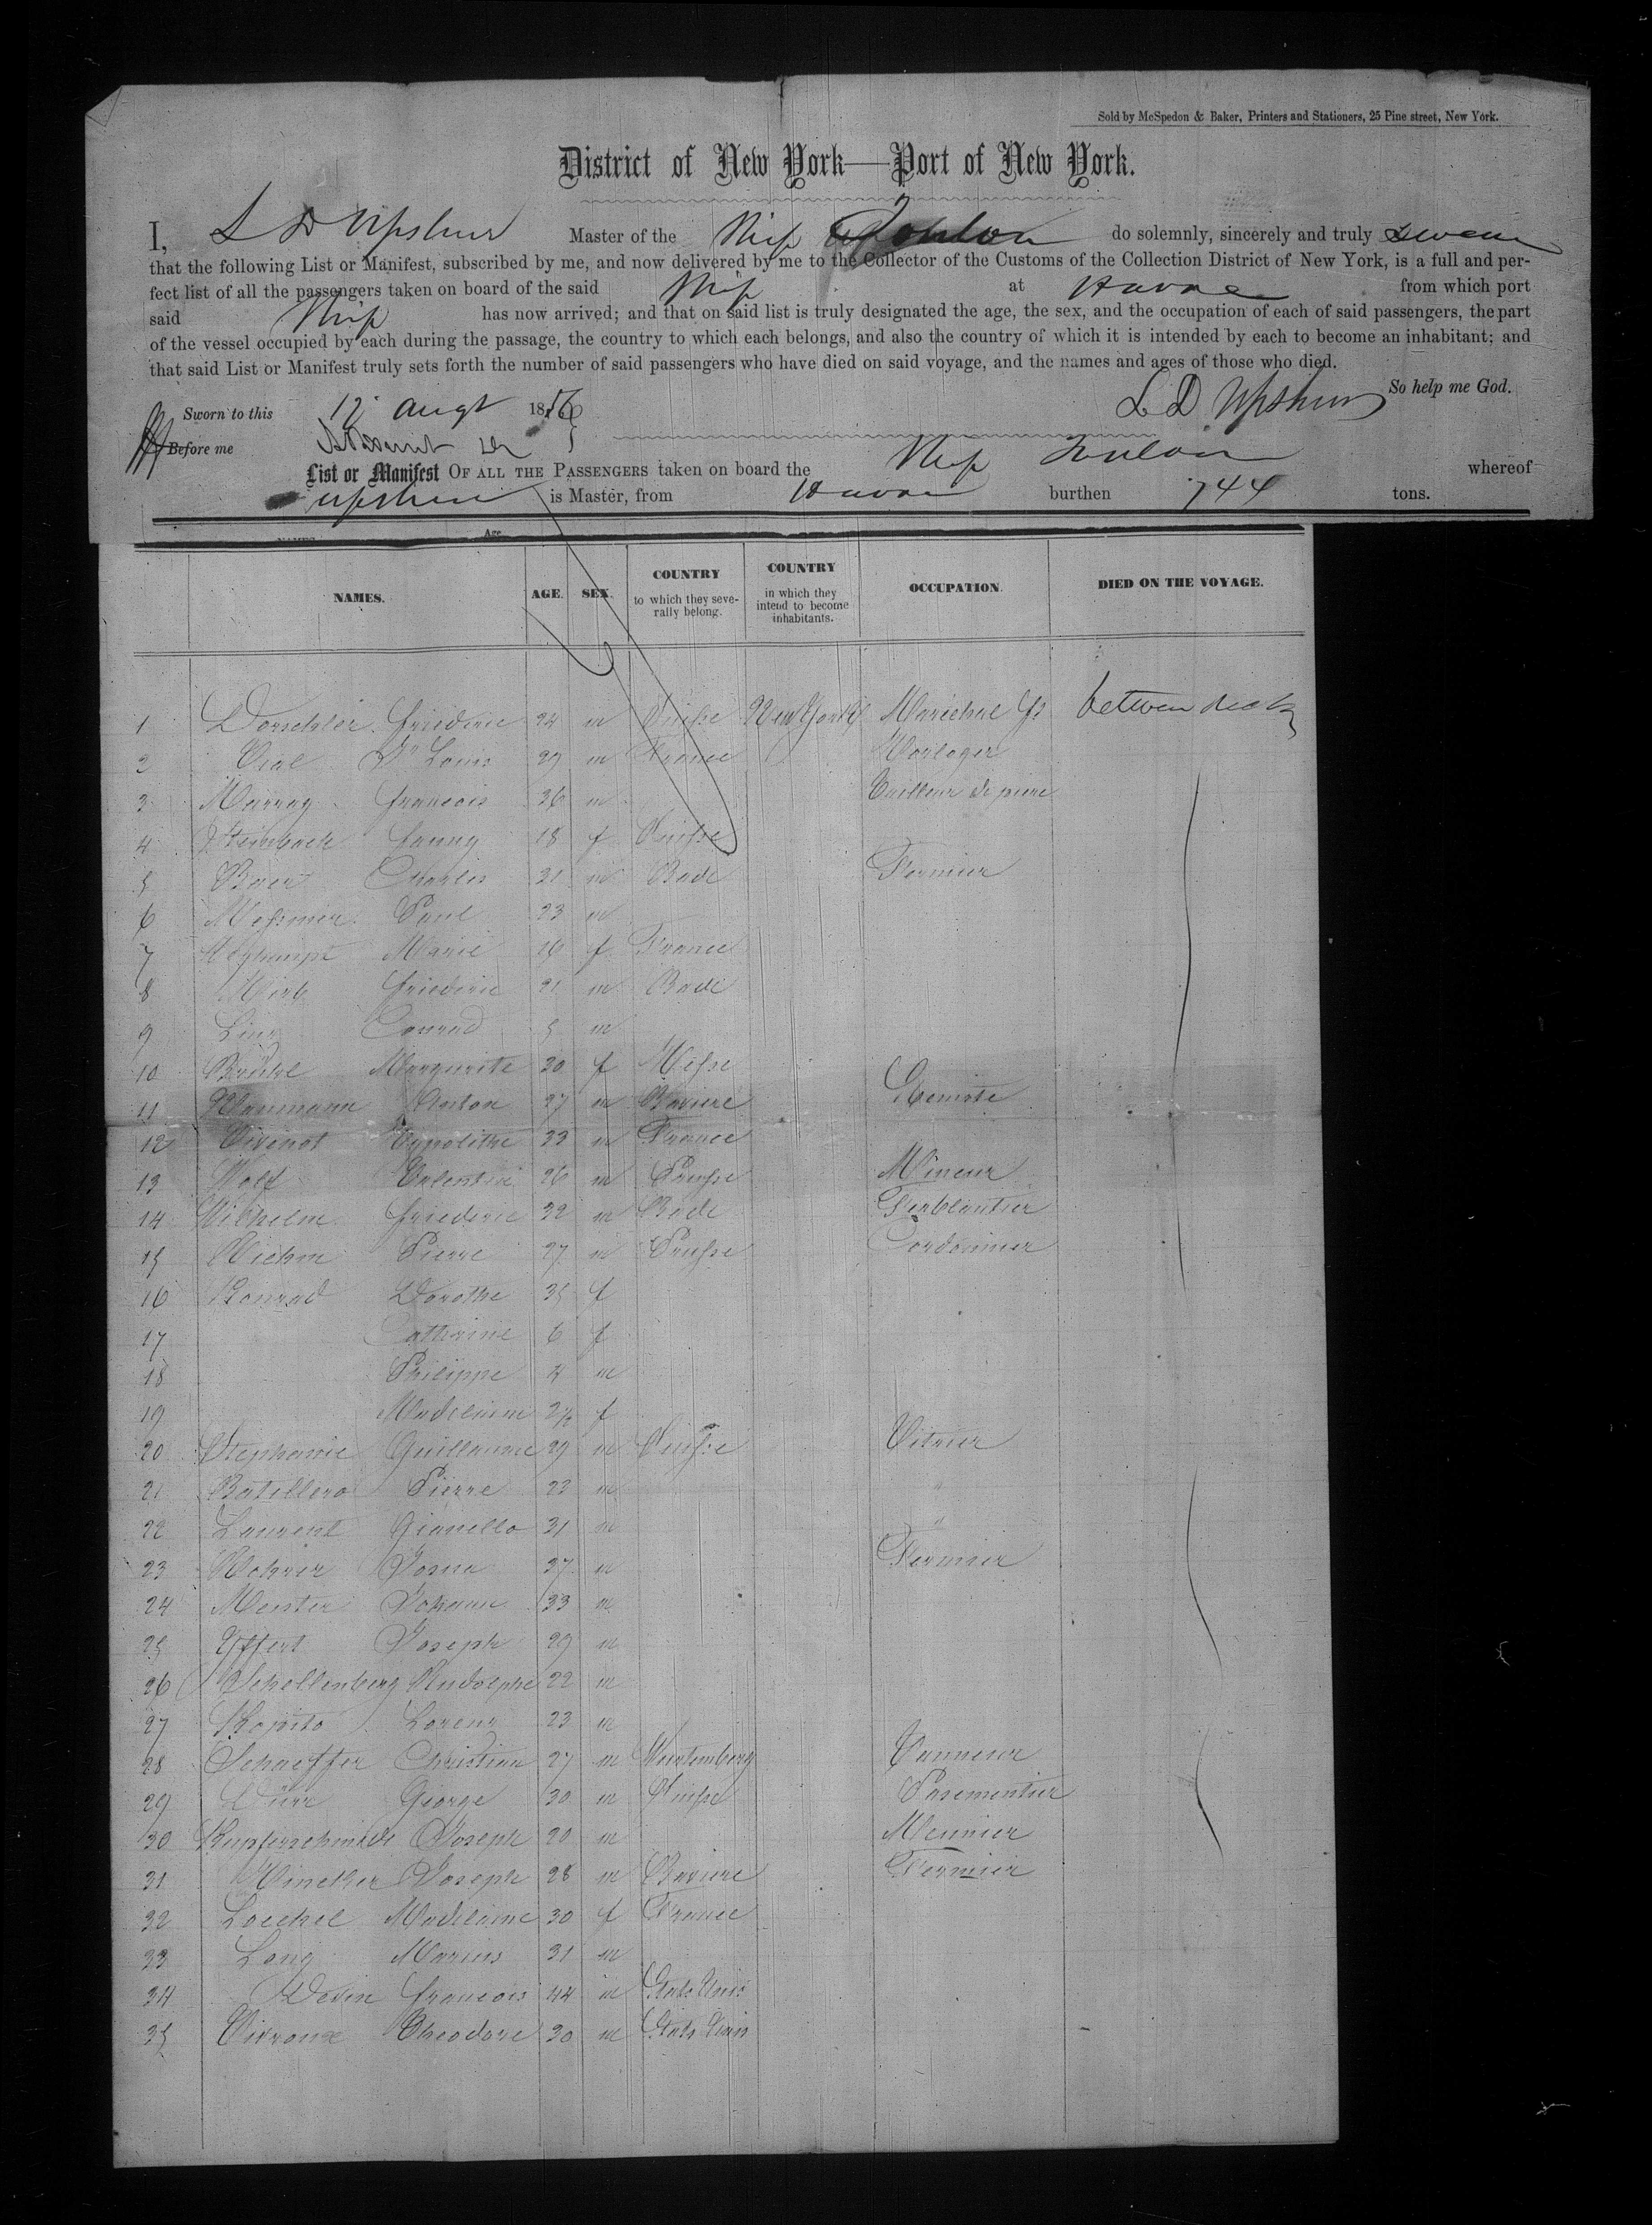 Sold by McSpedon & Baker, Printers and Stationers, 25 Pine street, New York.
District of New York—Port of New York.
I, L D Upshur Master of the Ship Toulon do solemnly, sincerely and truly swear
that the following List or Manifest, subscribed by me, and now delivered by me to the Collector of the Customs of the Collection District of New York, is a full and per-
fect list of all the passengers taken on board of the said Ship at Havre from which port
said Ship has now arrived; and that on said list is truly designated the age, the sex, and the occupation of each of said passengers, the part
of the vessel occupied by each during the passage, the country to which each belongs, and also the country of which it is intended by each to become an inhabitant; and
that said List or Manifest truly sets forth the number of said passengers who have died on said voyage, and the names and ages of those who died.
So help me God.
Sworn to this 12 Augt 1856 L D Upshur
Before me
List or Manifest OF ALL THE PASSENGERS taken on board the Ship Toulon whereof
Upshur is Master, from Havre burthen 744 tons.
NAMES. AGE. SEX. COUNTRY to which they seve-rally belong. COUNTRY in which they intend to become inhabitants. OCCUPATION. DIED ON THE VOYAGE.
1 Friederic 24 m Suisse New York Marichal between decks
2 Vial Louis 29 m France Horloger
3 Marray francois 36 m Tailleur de pierre
4 Steinbach fanny 18 f Suisse
5 Baer Charles 21 m Bade Fermier
6 Messmer Paul 23 m
7 Marie 16 f France
8 friederic 21 m Bade
9 Conrad 5 m
10 Marguerite 20 f Hesse
11 Naumann Anton 27 m Baviere
12 Vivenot Hypolithe 23 m France
13 Wolf Valentin 26 m Prusse Mineur
14 Wilhelm friederic 32 m Bade Ferblantier
15 Riehm Pierre 27 m Prusse Cordonnier
16 Konrad Dorothe 35 f
17 Catherine 6 f
18 Philippe 4 m
19 Madelaine 2½ f
20 Stephanie Guillaume 29 m Suisse Vitrier
21 Batillera Pierre 22 m "
22 Laurent Gianella 31 m "
23 Rohrer Josue 37 m Fermier
24 Menter Johann 33 m
25 Yffert Joseph 29 m
26 Schellenberg Rudolphe 22 m
27 Lorenz 23 m
28 Schaeffer Christian 27 m Wurtemberg Tanneur
29 Dürr George 30 m Suisse Pasementier
30 Kupferschmidt Joseph 20 m Meunier
31 Joseph 28 m Baviere Fermier
32 Loechel Madelaine 30 f France
33 Lang Marius 31 m
34 Devin francois 44 m Etats Unis
35 Theodore 30 m Etats Unis